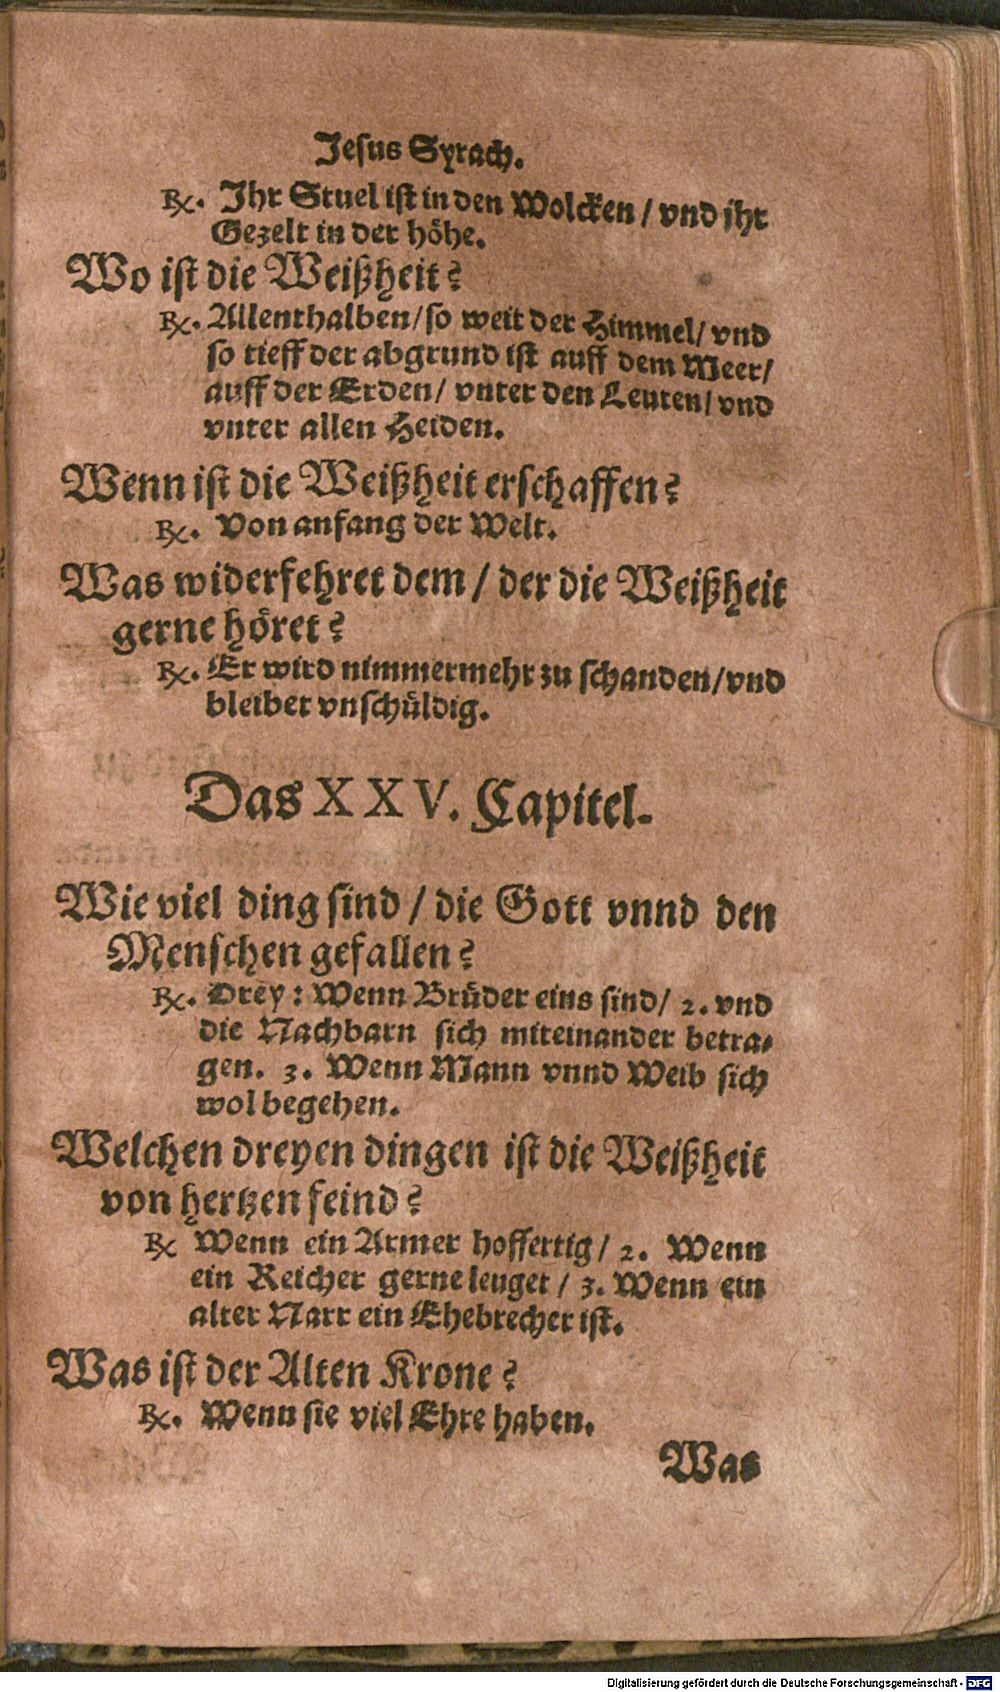 Jesus Syrach.
℞. Ihr Stuel ist in den Wolcken / vnd ihr
Gezelt in der höhe.
Wo ist die Weißheit?
℞. Allenthalben / so weit der Himmel / vnd
so tieff der abgrund ist auff dem Meer /
auff der Erden / vnter den Leuten / vnd
vnter allen Heiden.
Wenn ist die Weißheit erschaffen?
℞. Von anfang der Welt.
Was widerfehret dem / der die Weißheit
gerne höret?
℞. Er wird nimmermehr zu schanden / vnd
bleibet vnschüldig.
Das XXV. Capitel.
Wie viel ding sind / die Gott vnnd den
Menschen gefallen?
℞. Drey: Wenn Brüder eins sind / 2. vnd
die Nachbarn sich miteinander betra-
gen. 3. Wenn Mann vnnd Weib sich
wol begehen.
Welchen dreyen dingen ist die Weißheit
von hertzen feind?
℞ Wenn ein Armer hoffertig / 2. Wenn
ein Reicher gerne leuget / 3. Wenn ein
alter Narr ein Ehebrecher ist.
Was ist der Alten Krone?
℞. Wenn sie viel Ehre haben.
Was
Digitalisierung gefördert durch die Deutsche Forschungsgemeinschaft - DFG